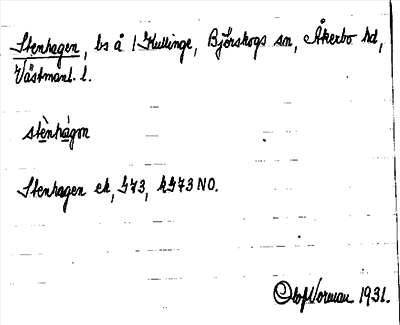 Stenhagen, bs å 1 Kullinge, Björskogs sn, Åkerbo hd,
Västmanl. l.
stènhágɷn
Stenhagen ek, S73, k S73 NO.
Olof Norman 1931.